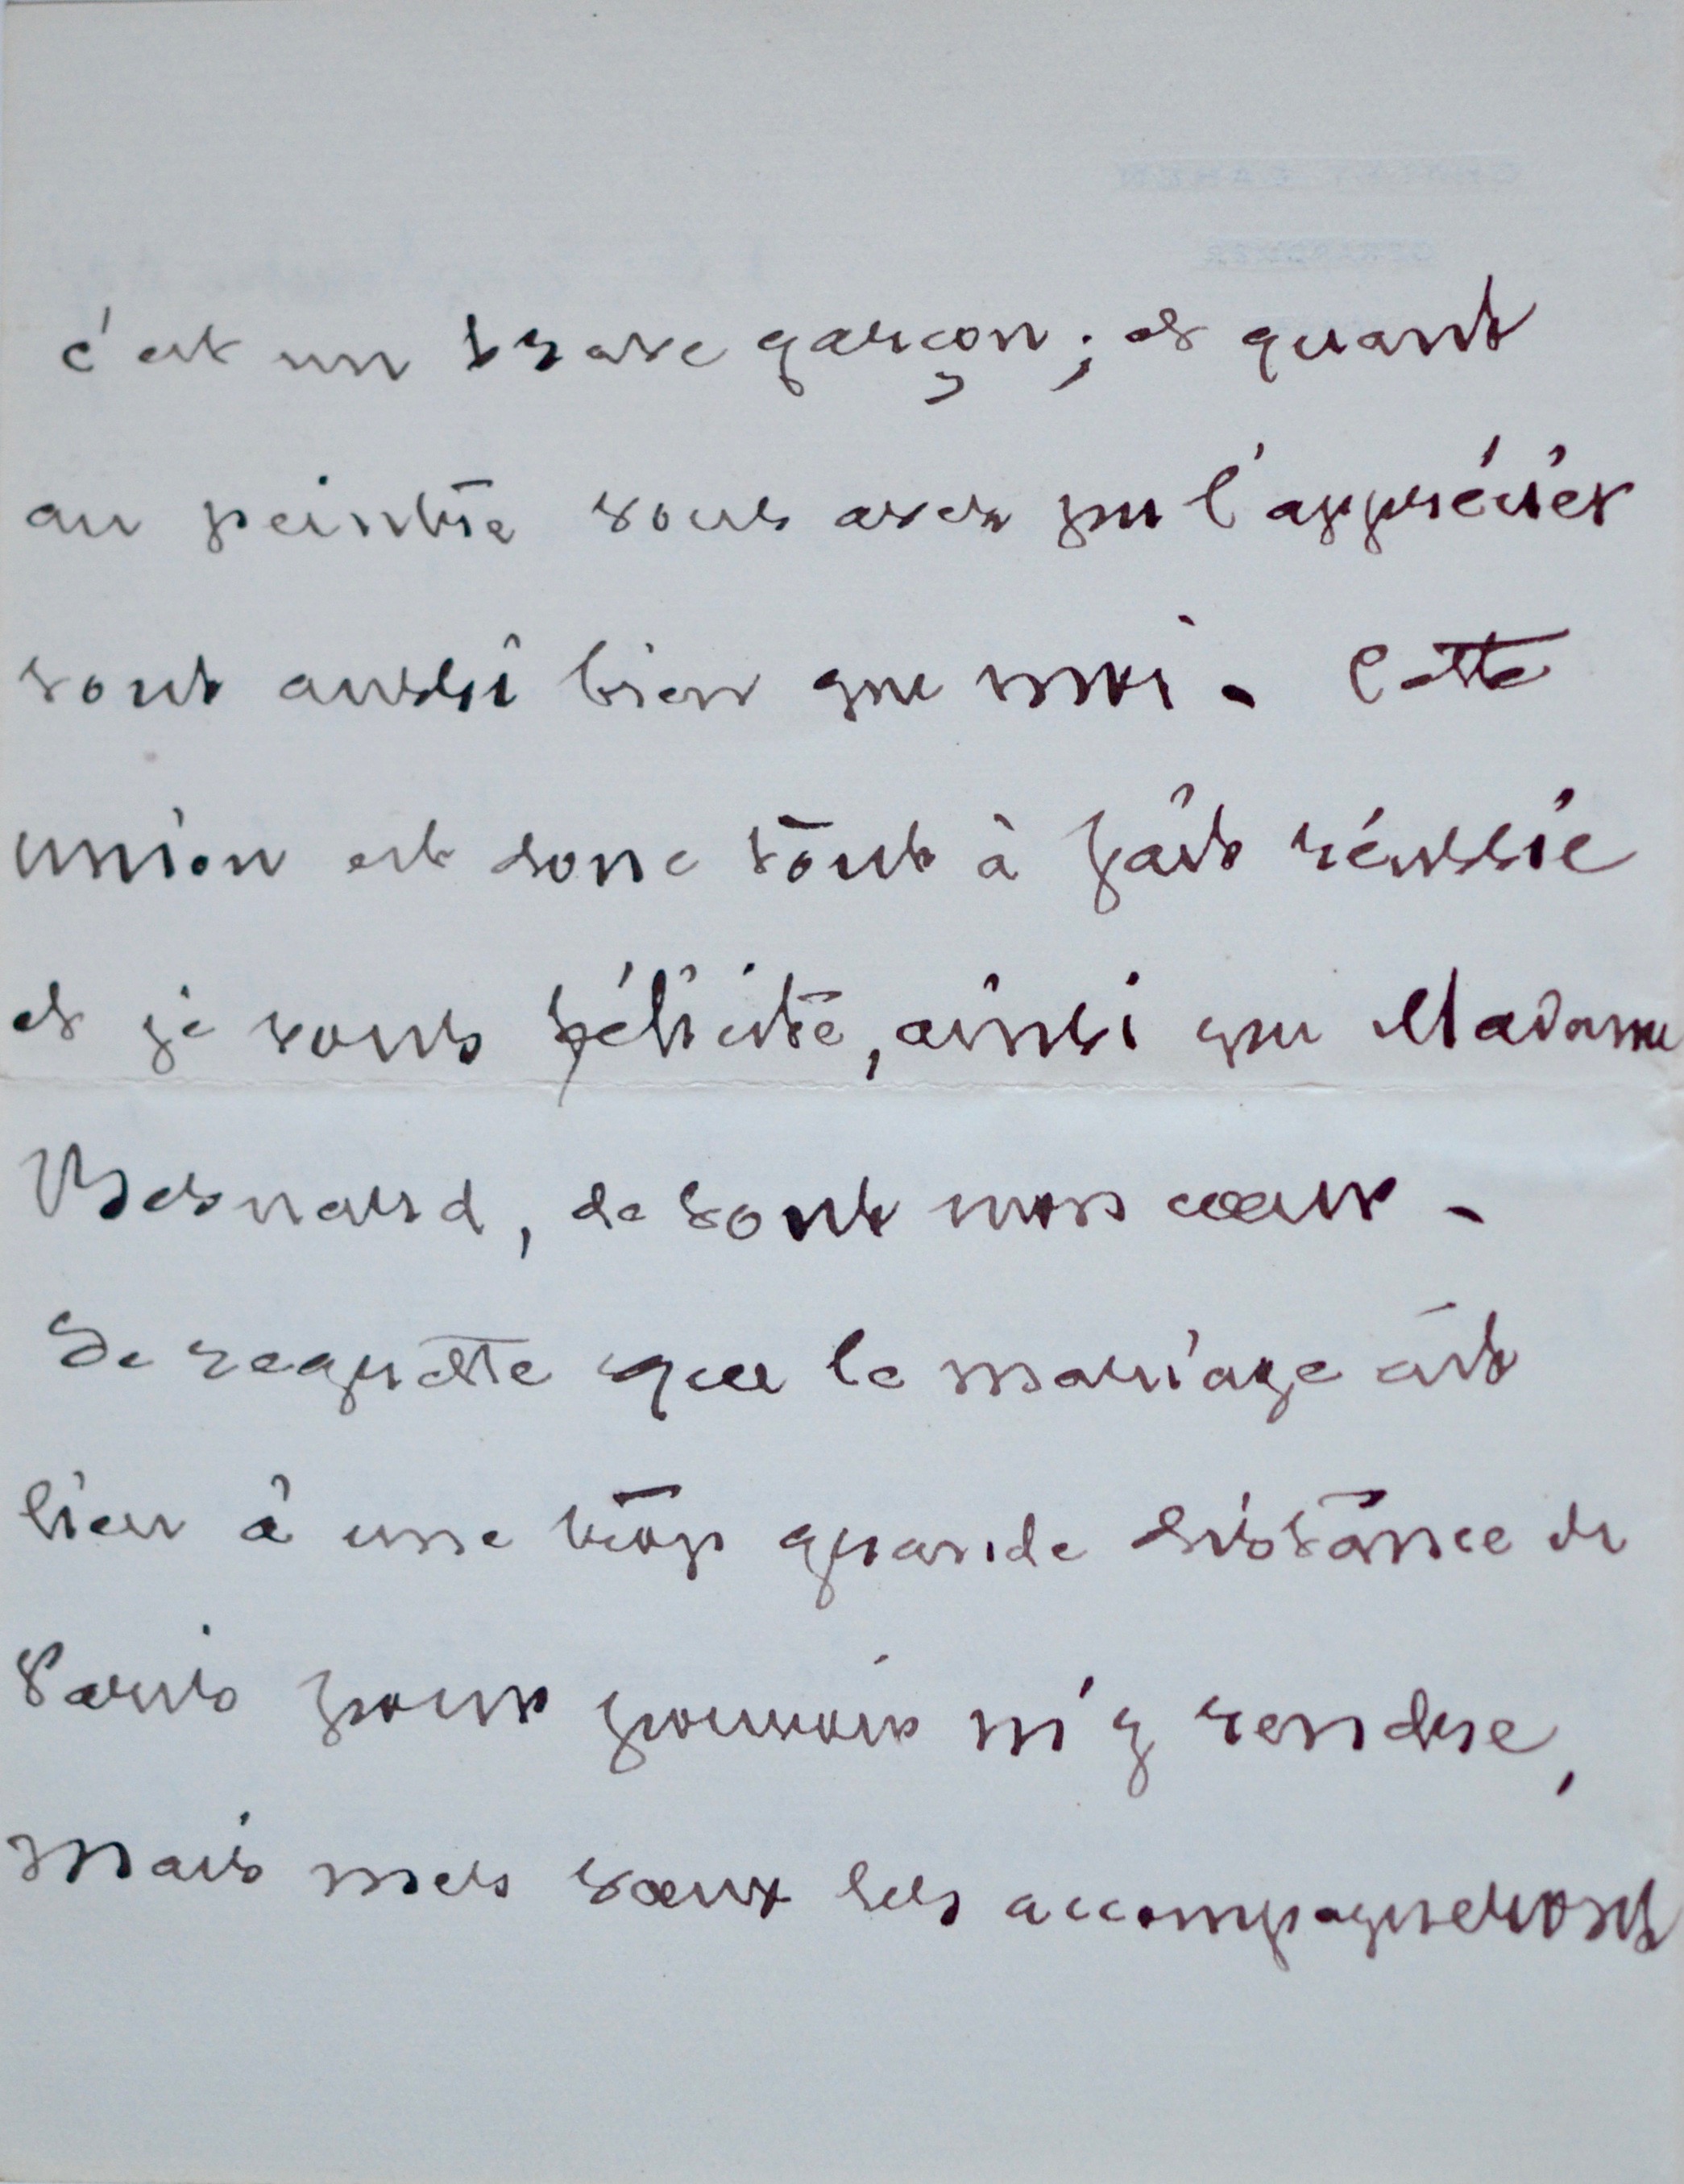 c'est un brave garçon ; et quant
au peintre vous avez pu l'apprécier
tout aussi bien que moi. Cette
union est donc tout à fait réussie
et je vous félicite, ainsi que Madame
Besnard, de tout mon cœur.
Je regrette que le mariage ait
lieu à une trop grande distance de
Paris pour pouvoir m'y rendre,
mais mes vœux les accompagneront